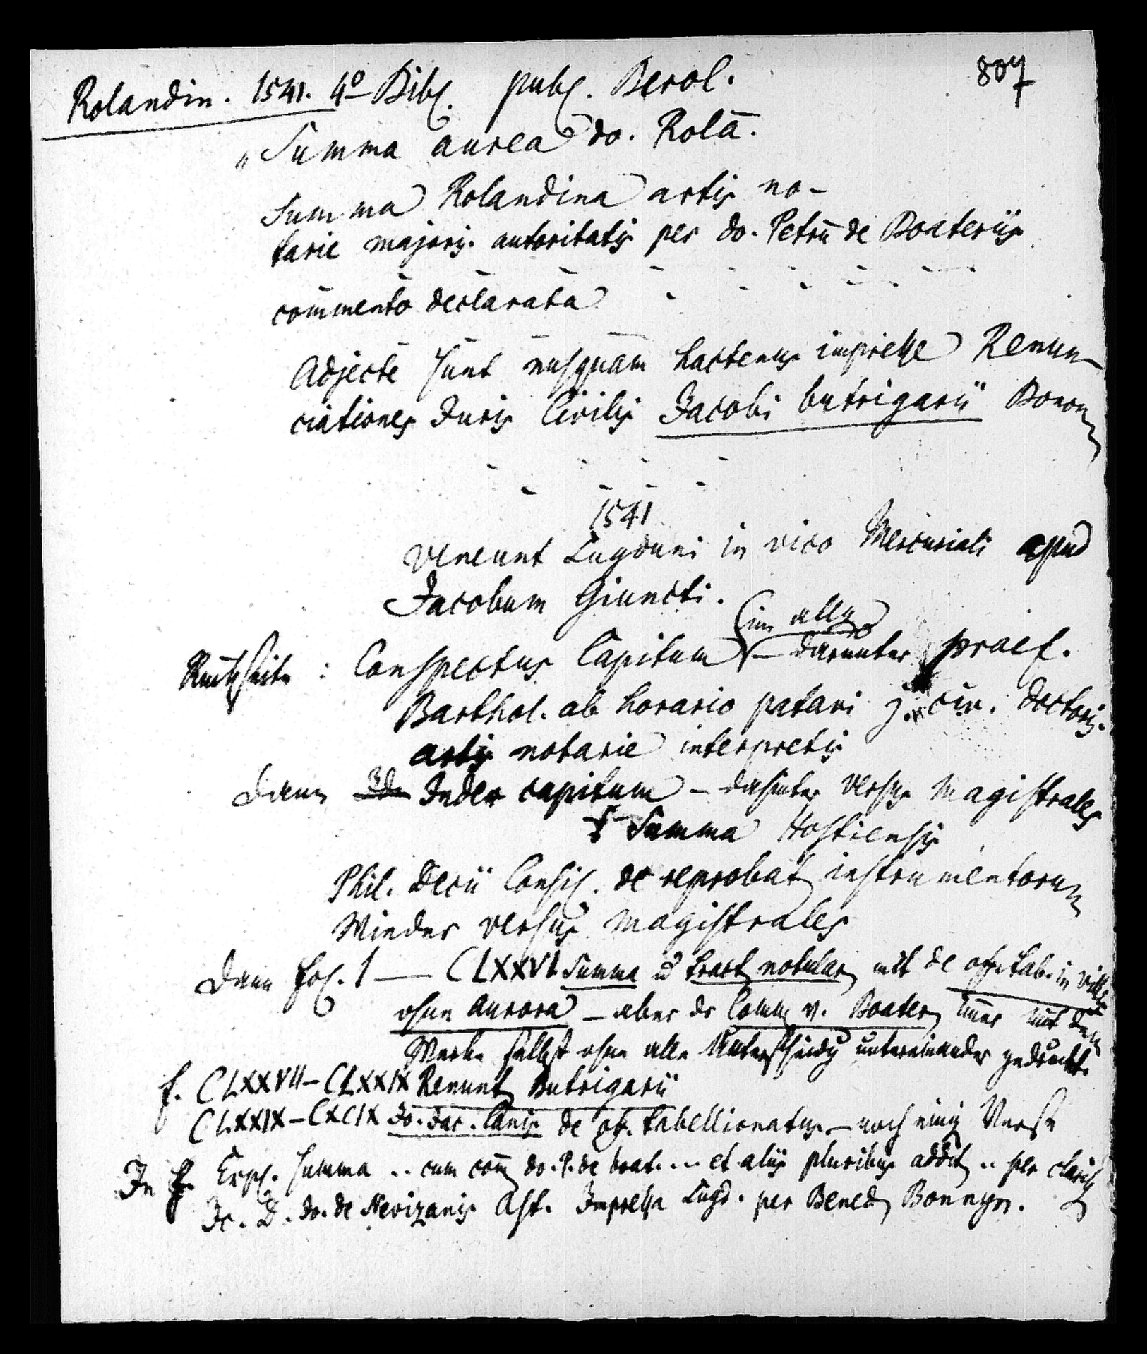 807
Rolandin. 1541. 4º Bibl. publ. Berol.
"Summa aurea do. Rolā.
Summa Rolandina artis no-
tarie majoris autoritatis per do. Petrū de Boateriis
com̄ento declarata
Adjecte sunt nusquam hactenus impresse Renun-
ciationes Juris Civilis Jacobi butrigarii Bonon
1541
veneunt Lugduni in vico Mercuriali apud
Jacobum Giuncti.
Rückseite : Conspectus Capitum – darunter praef.
Barthol. ab horario patavi j. civ. doctoris.
artis notarie interpretis
Dann Index capitum – dahinter versus magistrales
Summa Hostiensis
Phil. Decii Consil. de reprobat instrumentorum
Wieder versus magistrales
Dann fol. 1 — CLXXVI Summa u tract notular mit de off. tab. in vill
ohne Aurora – aber der Comm v. Boater immer mit dem
Werke selbst ohne alle Unterscheidg untereinander gedruckt.
f. CLXXVII–CLXXIX Renunt Butrigarii
CLXXIX–CXCIX do. Jac. Canis de off. tabellionatus – noch einig Verse
In f. Expl. summa .. cum com do. P. de boat. .. et aliis pluribus addit .. per claris
Jc. D. do. de Nevizanis Ast. Impressa Lugd. per Bened Bonnyn.